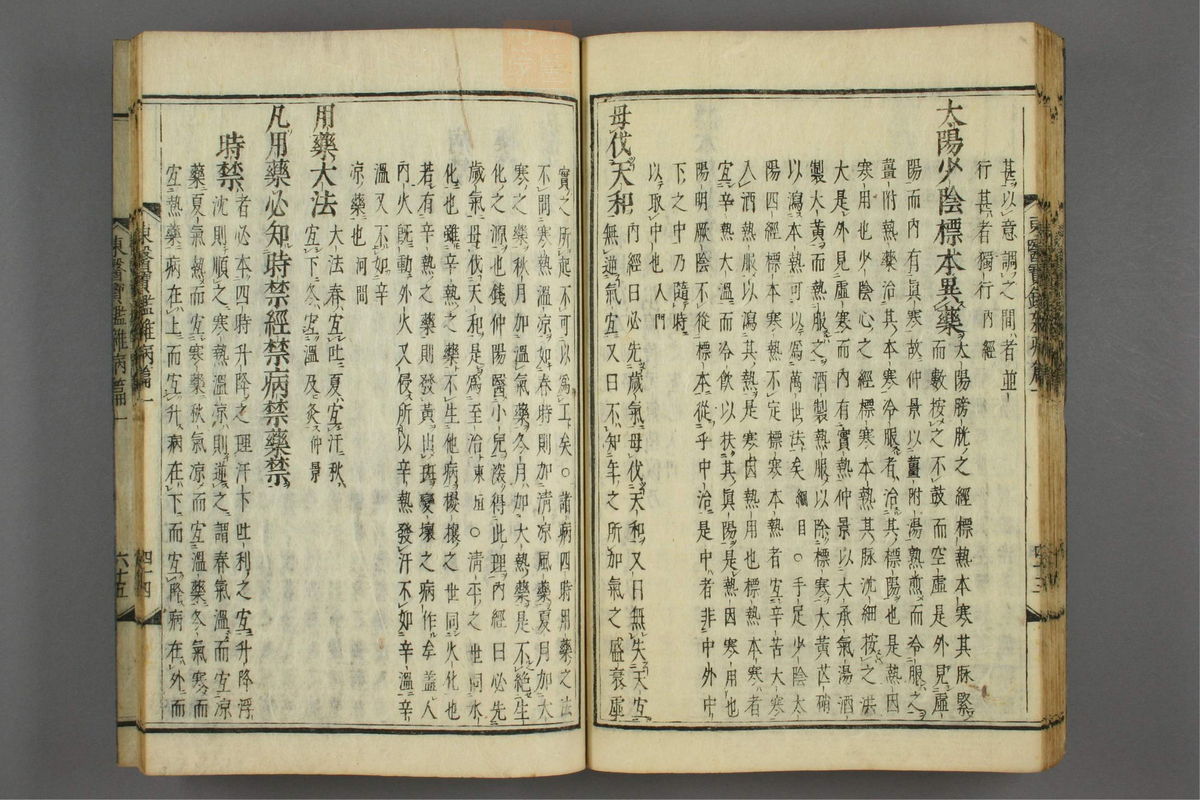 甚者以意調之間者並
行甚者獨行內經
太陽少陰標本異藥 太陽膀胱之經標熱本寒其脉緊
陽而內有眞寒故仲景以薑附湯熱煎而冷服之
薑附熱藥治其本寒冷服者治其標陽也是熱因
寒用也少陰心之經標寒本熱其脉沈細按之洪
大是外見虛寒而內有實熱仲景以大承氣湯酒
製大黃而熱服之酒製熱服以除標寒大黃芒硝
以瀉本熱可以爲萬世法矣綱目○手足少陰太
陽四經標本寒熱不定標寒本熱者宜辛苦大寒
入酒熱服以瀉其熱是寒因熱用也標熱本寒者
宜辛熱大溫而冷飮以扶其眞陽是熱因寒用也
陽明厥陰不從標本從乎中治是中者非中外中
下之中乃隨時
以取中也入門
毋伐天和 內經曰必先歲氣毋伐天和又曰無失天宜
無逆氣宜又曰不知年之所加氣之盛衰虛
實之所起不可以爲工矣○諸病四時用藥之法
不問寒熱溫凉如春時則加淸凉風藥夏月加大
寒之藥秋月加溫氣藥冬月加大熱藥是不絶生
化之源也錢仲陽醫小兒深得此理內經曰必先
歲氣毋伐天和是爲至治東垣○淸平之世同水
化也雖辛熱之藥不生他病擾攘之世同火化也
若有辛熱之藥則發黃出斑變壞之病作矣盖人
內火旣動外火又侵所以辛熱發汗不如辛溫辛
溫又不如辛
凉藥也河間
用藥大法 大法春宜吐夏宜汗秋
宜下冬宜溫及灸仲景
凡用藥必知時禁經禁病禁藥禁
時禁 者必本四時升降之理汗下吐利之宜升降浮
沈則順之寒熱溫凉則逆之謂春氣溫而宜凉
藥夏氣熱而宜寒藥秋氣凉而宜溫藥冬氣寒而
宜熱藥病在上而宜升病在下而宜降病在外而
東醫寶鑑雜病篇一
四十四